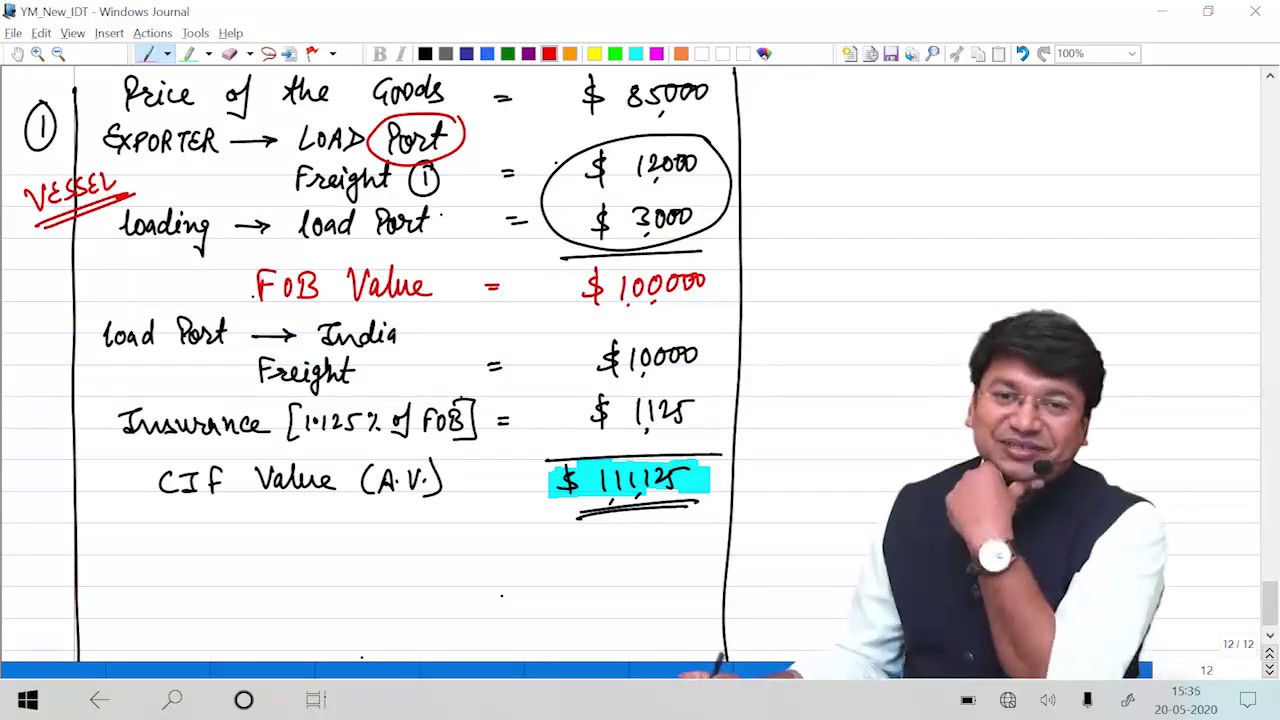 YM_New_IDT - Windows Journal
File Edit View Insert Actions Tools Help
B I 100%
Price of the Goods = $ 85,000
① EXPORTER → LOAD Port
Freight ① = $ 12,000
VESSEL
loading → load Port = $ 3,000
FOB Value = $ 1,00,000
load Port → India
Freight = $ 10,000
Insurance [1.125% of FOB] = $ 1,125
CIF Value (A.V.) $ 111,125
12 / 12
12
15:35
20-05-2020